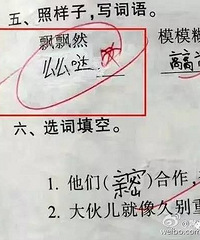 五、照样子,写词语。
飘飘然 模模糊
么么哒
六、选词填空。
1. 他们(亲密)合作,
2. 大伙儿就像久别重
weibo.com